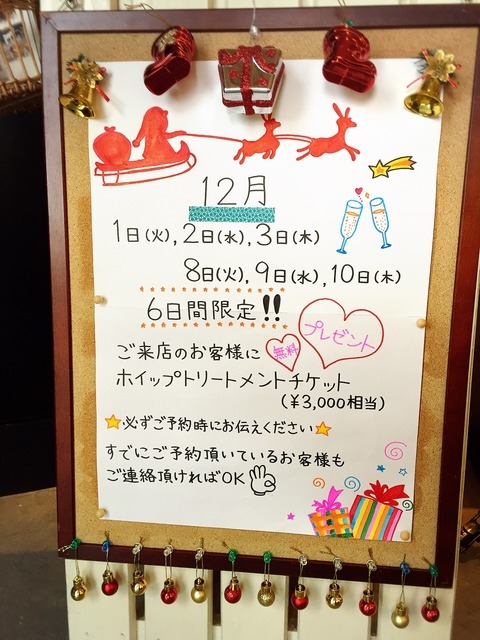 12月
1日(火),2日(水),3日(木)
8日(火),9日(水),10日(木)
6日間限定!!
プレゼント
無料
ご来店のお客様に
ホイップトリートメントチケット
(¥3,000相当)
必ずご予約時にお伝えください
すでにご予約頂いているお客様も
ご連絡頂ければOK